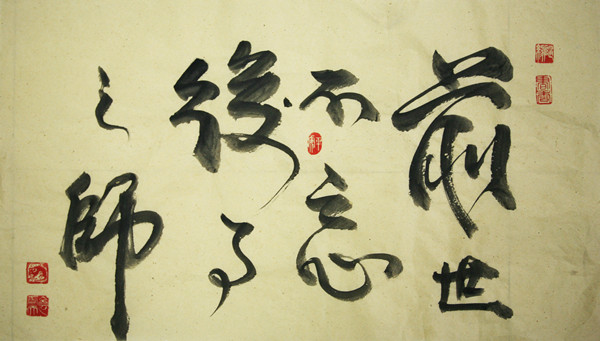 前世
不忘
後事
之師